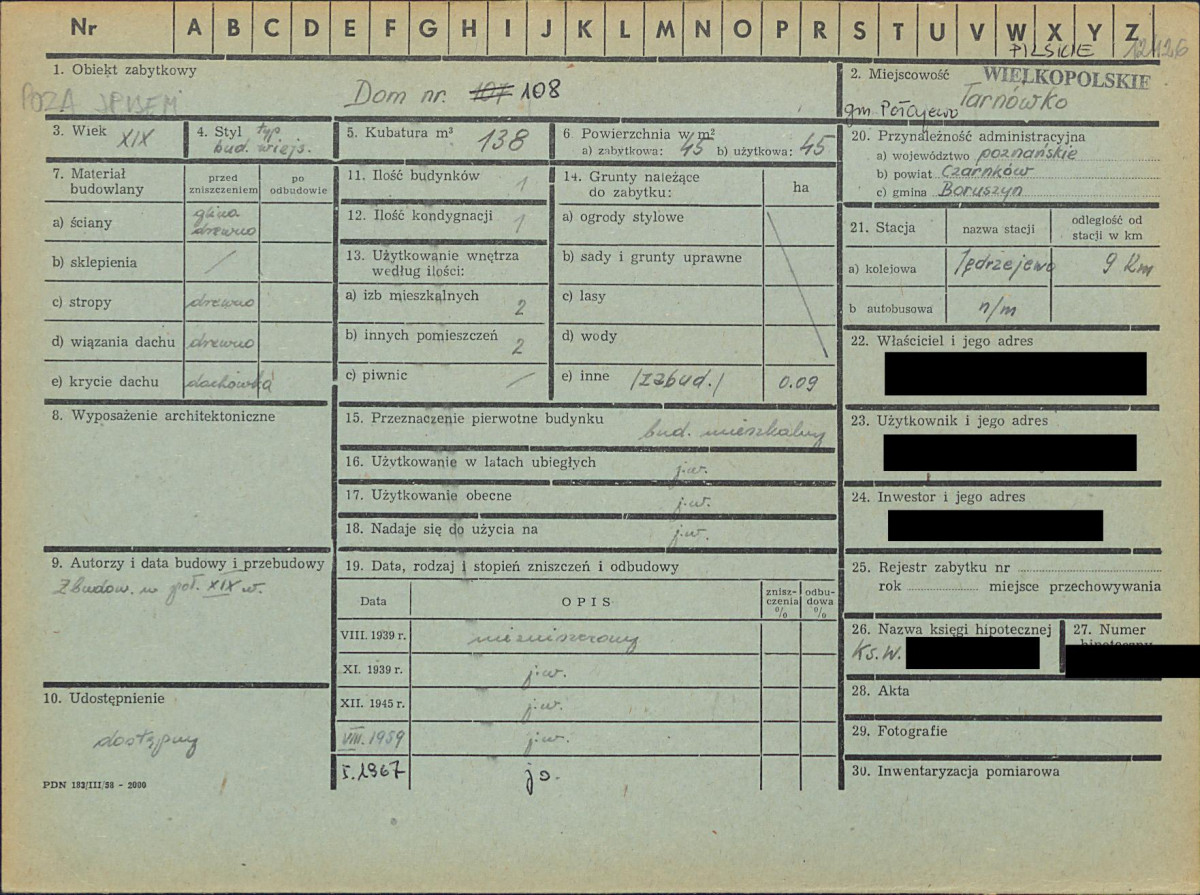 Nr A B C D E F G H I J K L M N O P R S T U V W X Y Z
PILSKIE
1. Obiekt zabytkowy
POZA SPISEM
Dom nr. 107 108
2. Miejscowość WIELKOPOLSKIE
gm. Połajewo Tarnówko
3. Wiek XIX
4. Styl typ.
bud. wiejs.
5. Kubatura m³ 138
6 Powierzchnia w m²
a) zabytkowa: 45 b) użytkowa: 45
20. Przynależność administracyjna
a) województwo poznańskie
b) powiat Czarnków
c) gmina Boruszyn
7. Materiał budowlany
przed zniszczeniem
po odbudowie
a) ściany glina drewno
b) sklepienia /
c) stropy drewno
d) wiązania dachu drewno
e) krycie dachu dachówka
11. Ilość budynków 1
12. Ilość kondygnacji 1
13. Użytkowanie wnętrza
według ilości:
a) izb mieszkalnych 2
b) innych pomieszczeń 2
c) piwnic /
14. Grunty należące
do zabytku:
ha
a) ogrody stylowe
b) sady i grunty uprawne
c) lasy
d) wody
e) inne /zabud./ 0.09
21. Stacja
nazwa stacji
odległość od
stacji w km
a) kolejowa Jędrzejewo 9 Km
b autobusowa n/m
22. Właściciel i jego adres
23. Użytkownik i jego adres
24. Inwestor i jego adres
25. Rejestr zabytku nr
rok miejsce przechowywania
26. Nazwa księgi hipotecznej
Ks. W.
27. Numer
hipoteczny
28. Akta
29. Fotografie
30. Inwentaryzacja pomiarowa
8. Wyposażenie architektoniczne
15. Przeznaczenie pierwotne budynku
bud. mieszkalny
16. Użytkowanie w latach ubiegłych j.w.
17. Użytkowanie obecne j.w.
18. Nadaje się do użycia na j.w.
9. Autorzy i data budowy i przebudowy
Zbudow. w poł. XIX w.
19. Data, rodzaj i stopień zniszczeń i odbudowy
Data
OPIS
znisz-
czenia
%
odbu-
dowa
%
VIII. 1939 r. niezniszczony
XI. 1939 r. j.w.
XII. 1945 r. j.w.
VIII. 1959 j.w.
I. 1967 j.w.
10. Udostępnienie
dostępny
PDN 183/III/58 - 2000